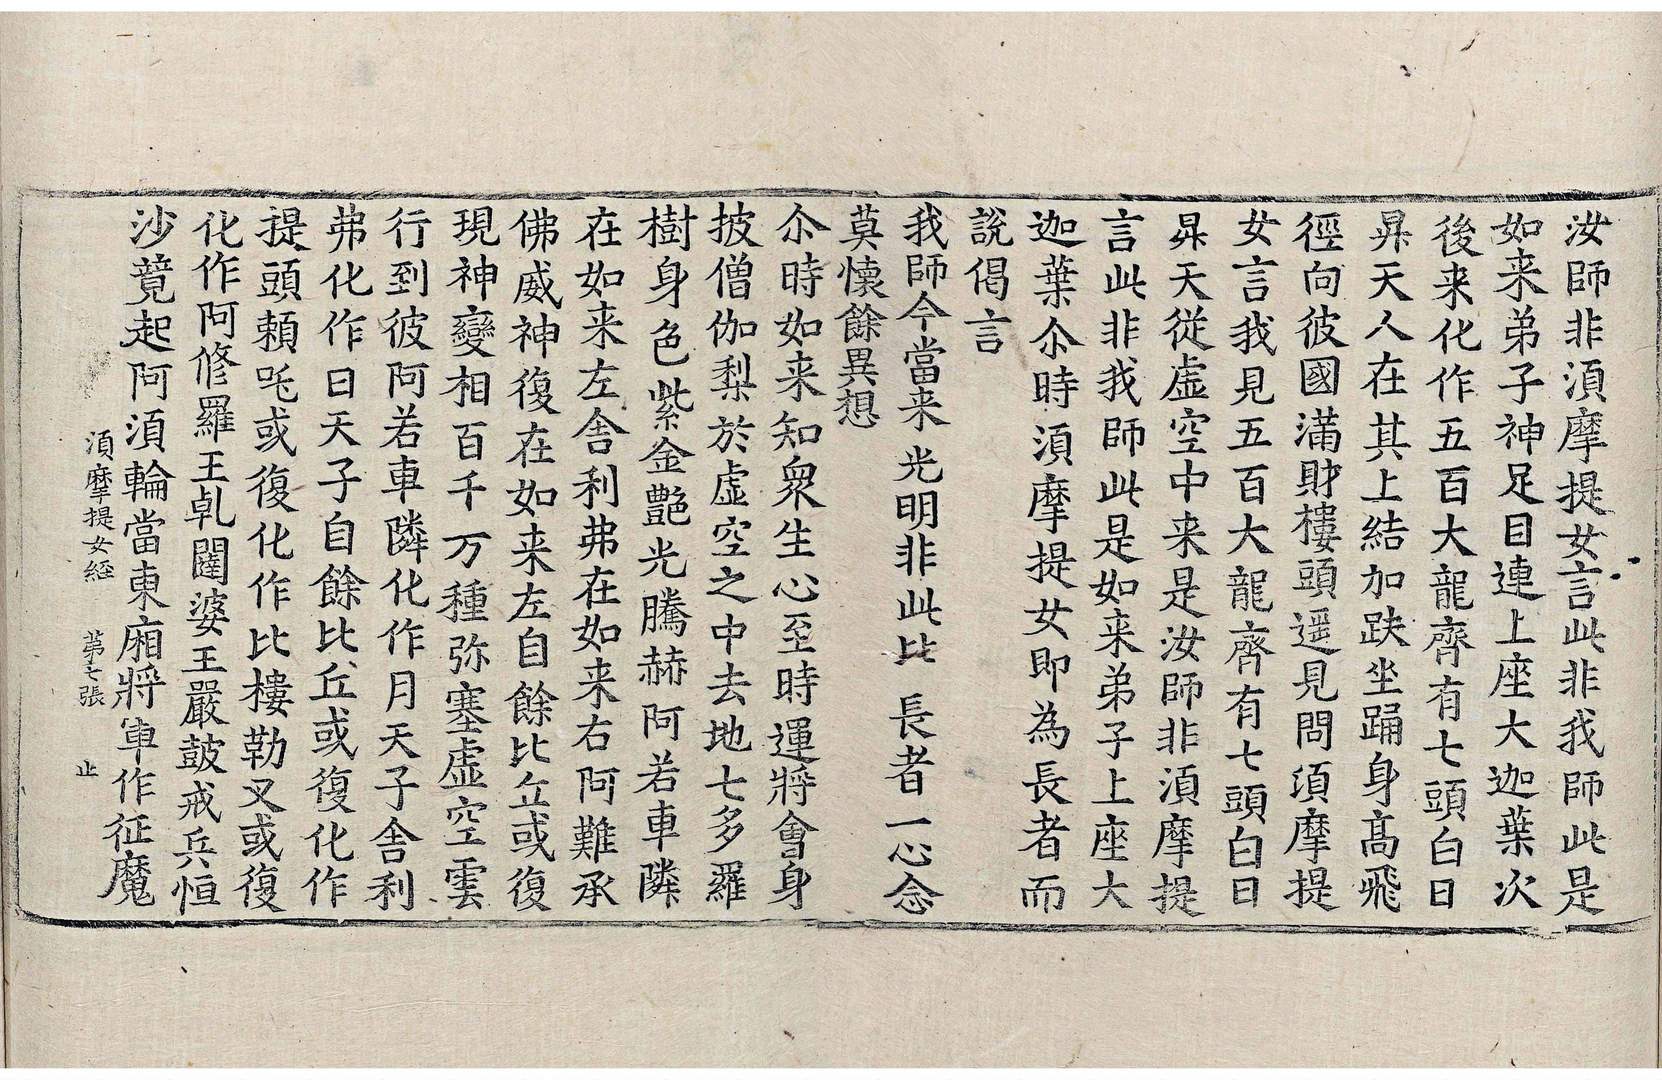 汝師非湏摩提女言此非我師此是
如来弟子神足目連上座大迦葉次
後来化作五百大龍齊有七頭白日
昇天人在其上結加趺坐踊身髙飛
徑向彼國滿財樓頭遥見問湏摩提
女言我見五百大龍齊有七頭白日
昇天從虛空中来是汝師非湏摩提
言此非我師此是如来弟子上座大
迦葉尒時湏摩提女即為長者而
說偈言
我師今當来 光明非此比 長者一心念
莫懷餘異想
尒時如来知衆生心至時運將會身
披僧伽梨於虛空之中去地七多羅
樹身色紫金艶光騰赫阿若車隣
在如来左舎利弗在如来右阿難承
佛威神復在如来左自餘比丘或復
現神變相百千万種弥塞虛空雲
行到彼阿若車隣化作月天子舎利
弗化作日天子自餘比丘或復化作
提頭頼吒或復化作比樓勒叉或復
化作阿修羅王乹闥婆王嚴皷戒兵恒
沙竟起阿湏輪當東廂將軍作征魔
湏摩提女経 苐七張 止